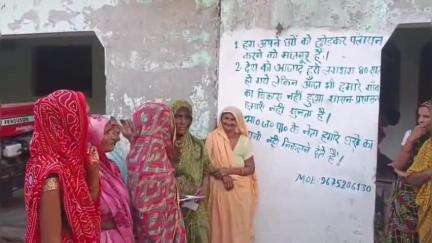 1 हम अपने घरों को छोड़कर पलायन
करने को मजबूर है।
2 देश को आजाद हुये लगभग 80 साल
हो गये लेकिन आज भी हमारे गांव
का विकास नहीं हुआ शासन प्रशासन
हमारी नहीं सुनता है।
के नेता हमारे रोड का
पानी नहीं निकलने देते है।
MOB-9675206130